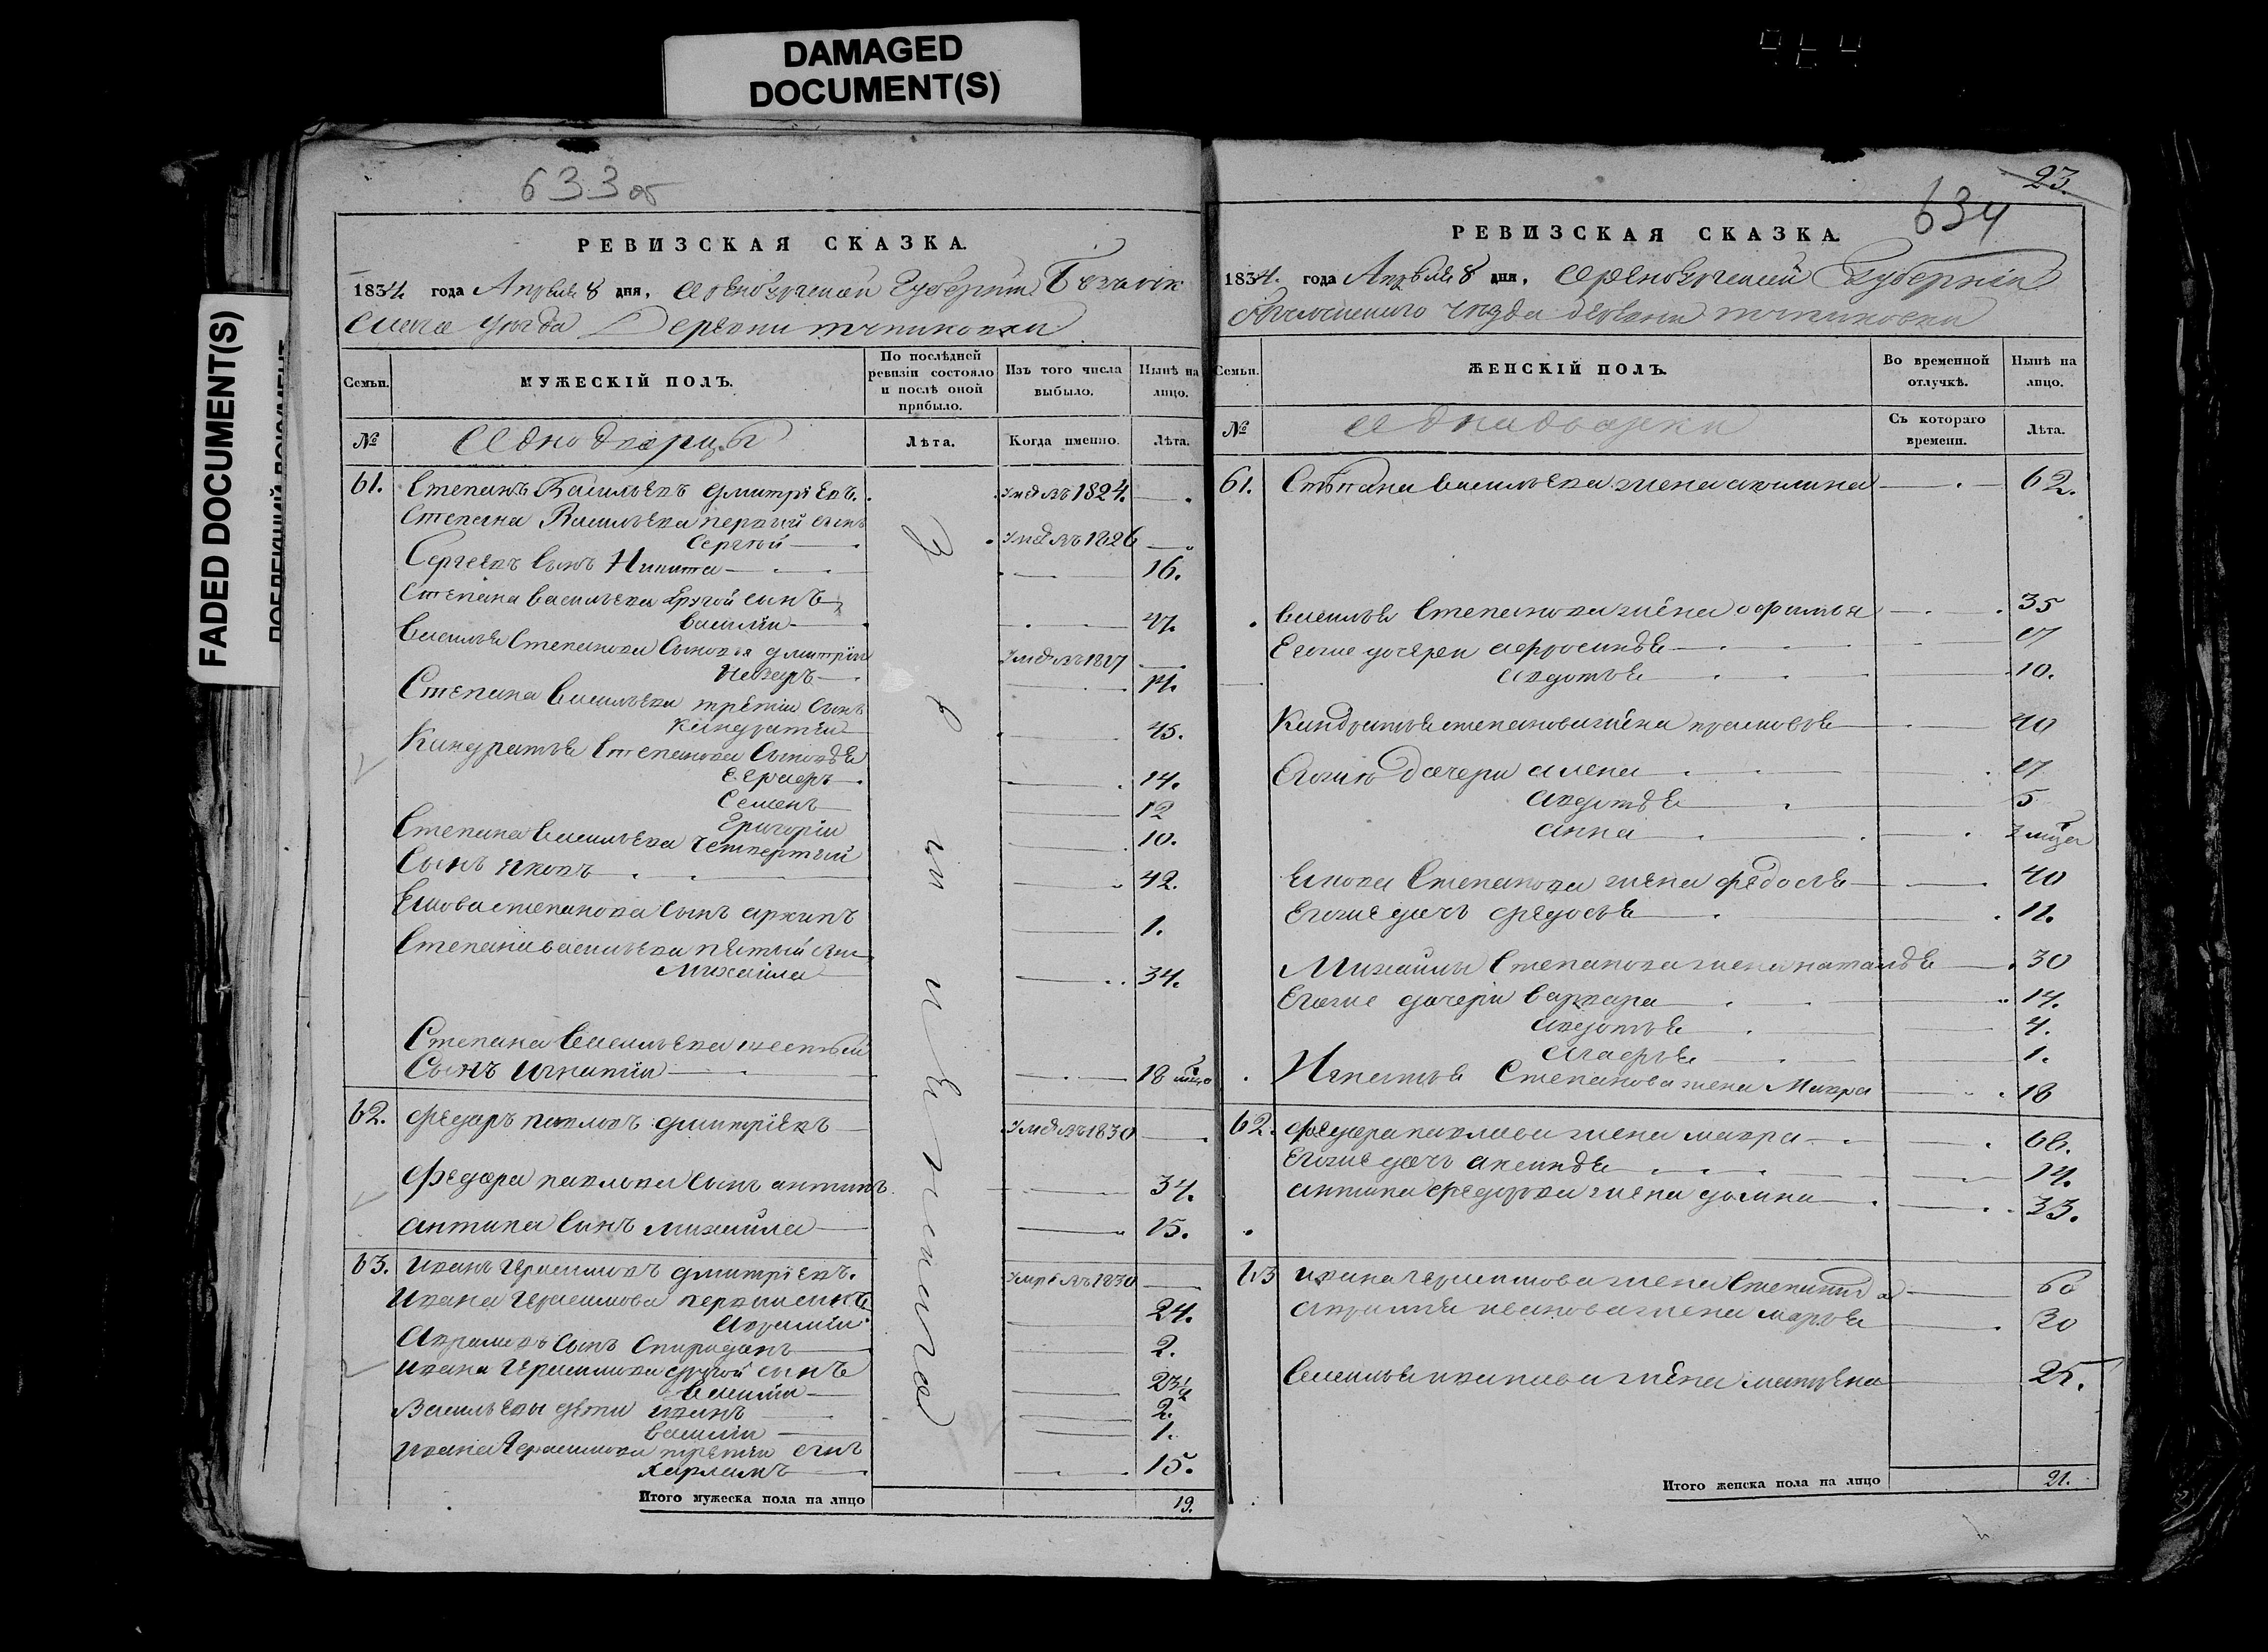 DAMAGED
DOCUMENT(S)
FADED DOCUMENT(S)
633 об
РЕВИЗСКАЯ СКАЗКА.
1834 года Апреля 8 дня, Оренбургской Губернии Бузулук
скаго уезда Деревни
Семьи.
МУЖЕСКІЙ ПОЛЪ.
По послѣдней ревизіи состояло и послѣ оной прибыло.
Изъ того числа выбыло.
Нынѣ на лицо.
№
Однодворцы
Лѣта.
Когда именно.
Лѣта.
61. Степанъ Васильевъ Дмитріевъ. умре въ 1824.
Степана Васильева первый сынъ
Сергѣй умре въ 1826
Сергеевъ сынъ Никита 16.
Степана васильева другой сынъ
василій 47.
васильа Степанова Сыновья дмитрій
Степана васильева третіи сынъ
Кандратій 45.
Кандратьа Степанова Сыновьа
14.
Семенъ 12
Григоріи 10.
Степана васильева четвертый
Сынъ яковъ 42.
Степанова сынъ архипъ 1.
Степана васильева пятый сын
Михаила 34.
Степана васильева шестый
Сынъ игнатіи 18
62. Федаръ павловъ дмитріевъ умре въ 1830
Федара павлова сынъ антипъ 34.
антипа сынъ михаила 15.
63. иванъ Герасимовъ дмитріевъ. умре въ 1830
ивана Герасимова первыи сынъ
24.
сынъ Спиридонъ 2.
ивана Герасимова другой сынъ
василіи 23½
Васильевы дети иванъ 2.
василіи 1.
ивана Герасимова третіи сынъ
харламъ 15.
Итого мужеска пола на лицо 19.
23
634
РЕВИЗСКАЯ СКАЗКА.
1834. года Апреля 8 дня, Оренбургской Губерніи
уезда деревни
Семьи.
ЖЕНСКІЙ ПОЛЪ.
Во временной отлучкѣ.
Нынѣ на лицо.
№
Однодворки
Съ котораго времени.
Лѣта.
61. Степана васильева жена акилина 62.
васильа Степанова жена 35
Егоже дочери 17
авдотьа 10.
Кандратьа степанова жена 40
Егоже дочери алена 17
авдотьа 5
анна
Степанова жена федосьа 40
Егоже дочь федосьа 11.
Михайлы Степанова жена натальа 30
Егоже дочери варвара 14.
авдотьа 4.
1.
Игнатьа Степанова жена Мавра 18
62. федара павлава жена мавра 66.
Егоже дочь аксиньа 14.
антипа федорова жена домна 33.
63 ивана Герасимова жена Степанида 60
иванова жена марьа 30
васильа иванава жена матрена 25.
Итого женска пола на лицо 21.